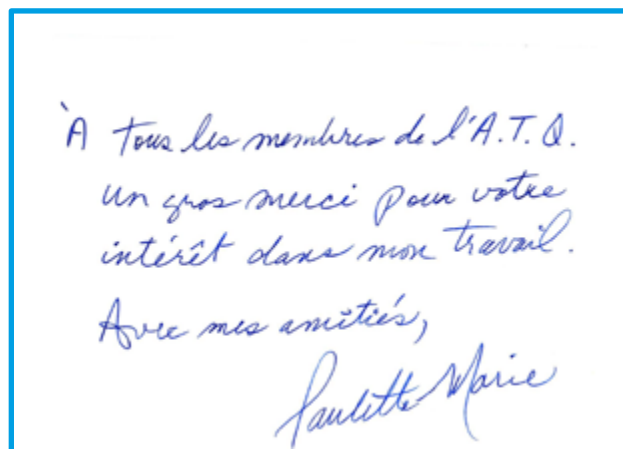 À tous les membres de l'A.T.Q.
un gros merci pour votre
intérêt dans mon travail.
Avec mes amitiés,
Paulette-Marie